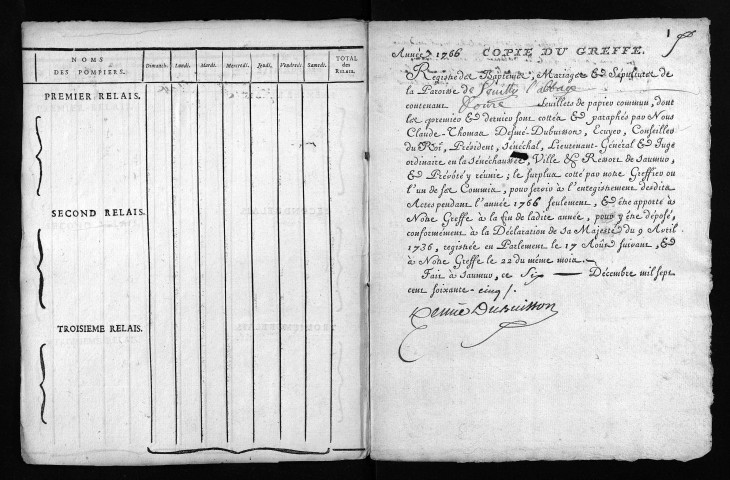 NOMS
DES POMPIERS.
Dimanch. Lundi. Mardi. Mercredi. Jeudi. Vendredi. Samedi.
TOTAL
des
Relais.
PREMIER RELAIS.
SECOND RELAIS.
TROISIEME RELAIS.
1
Année 1766 COPIE DU GREFFE.
Registre des Baptêmes, Mariages & Sépultures de
la Paroisse de
contenant feuillets de papier commun, dont
les premier & dernier sont cottés & paraphés par Nous
Claude-Thomas Desmé-Dubuisson, Ecuyer, Conseiller
du Roi, Président, Sénéchal, Lieutenant-Général & Juge
ordinaire en la Sénéchaussée, Ville & Ressort de Saumur,
& Prévôté y réunie; le surplus cotté par notre Greffier ou
l'un de ses Commis, pour servir à l'enregistrement desdits
Actes pendant l'année 1766 seulement, & être apporté à
Notre Greffe à la fin de ladite année, pour y être déposé,
conformément à la Déclaration de sa Majesté du 9 Avril
1736, registrée en Parlement le 17 Août suivant, &
à Notre Greffe le 22 du même mois.
Fait à Saumur, ce Six Décembre mil sept
cent soixante-cinq /.
Desmé Dubuisson